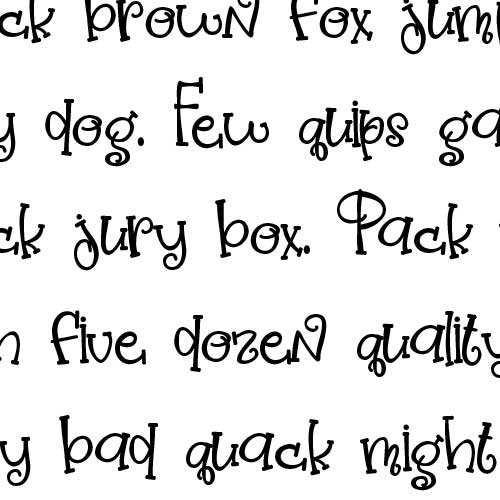 ck brown fox jum
y dog. Few quips ga
ck jury box. Pack
n five dozen quality
y bad quack might